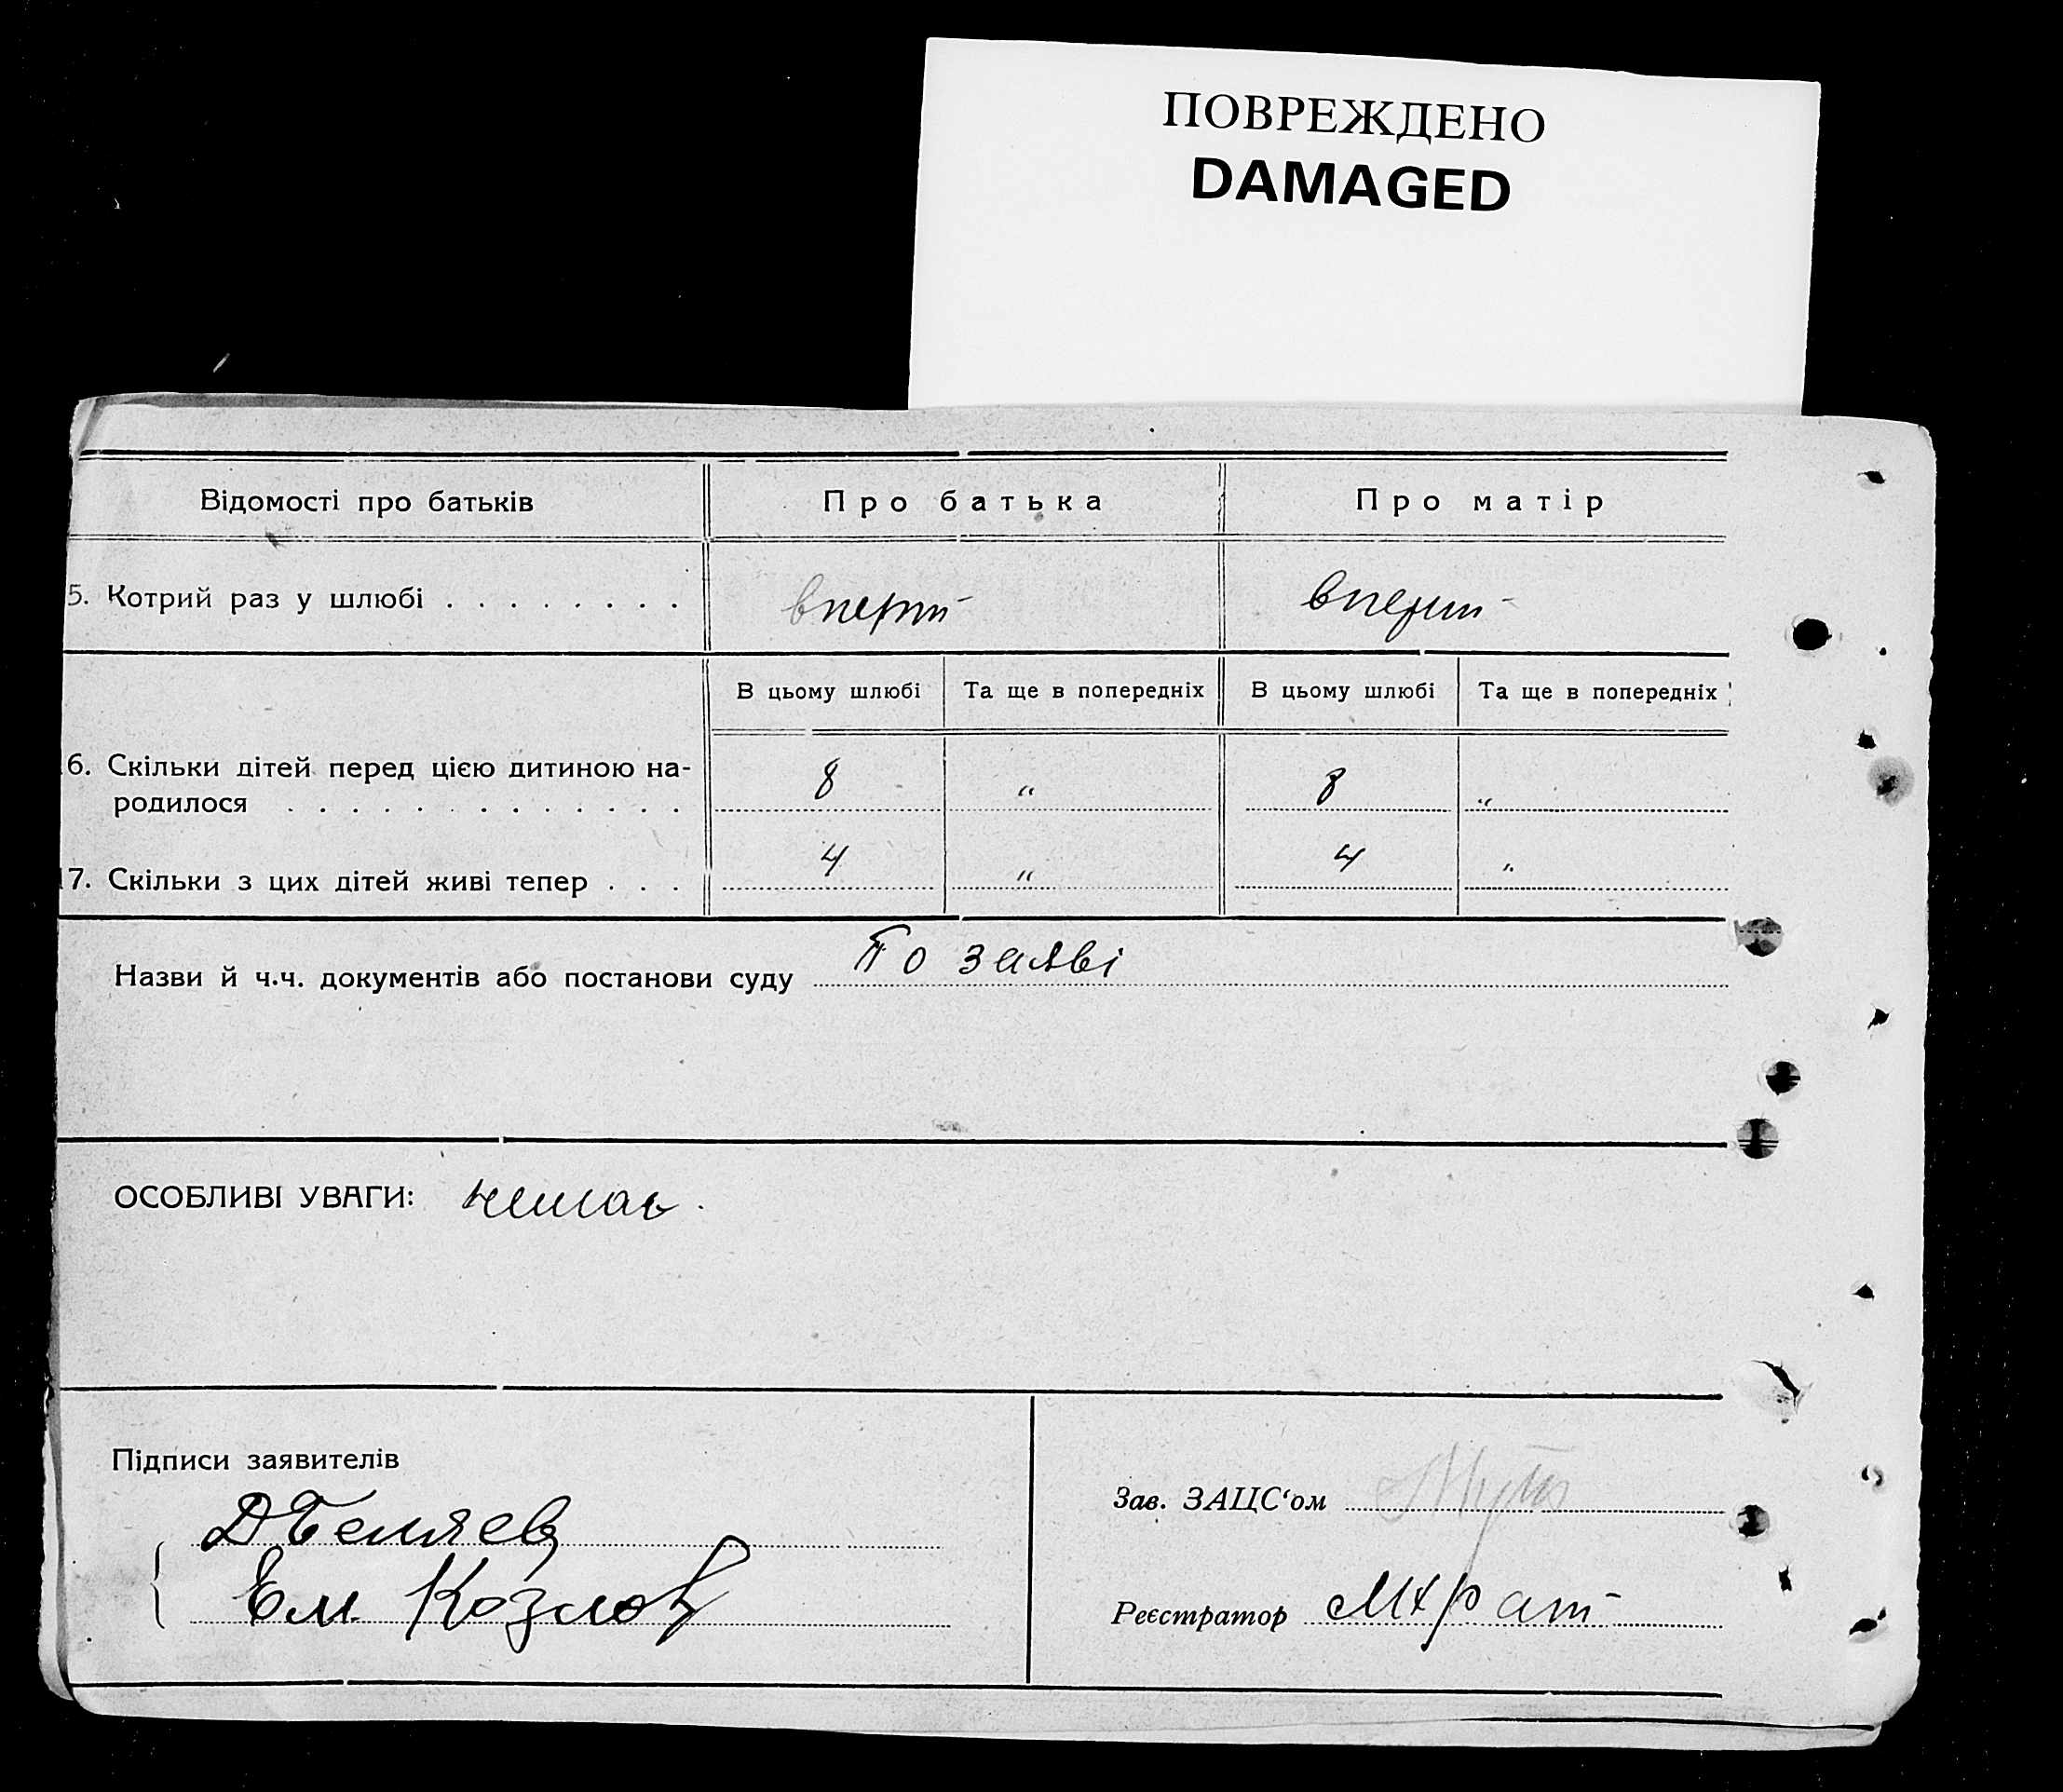 ПОВРЕЖДЕНО
DAMAGED
Відомості про батьків
Про батька
Про матір
5. Котрий раз у шлюбі . . . . . . . .
вперш
вперш
В цьому шлюбі
Та ще в попередніх
В цьому шлюбі
Та ще в попередніх
6. Скільки дітей перед цією дитиною на-
родилося . . . . . . . . . . . . .
8
"
8
"
17. Скільки з цих дітей живі тепер . . .
4
"
4
"
Назви й ч.ч. документів або постанови суду По заяві
ОСОБЛИВІ УВАГИ: немає.
Підписи заявителів
ДБеляев
Ем Козлов
Зав. ЗАЦС‘ом
Реєстратор